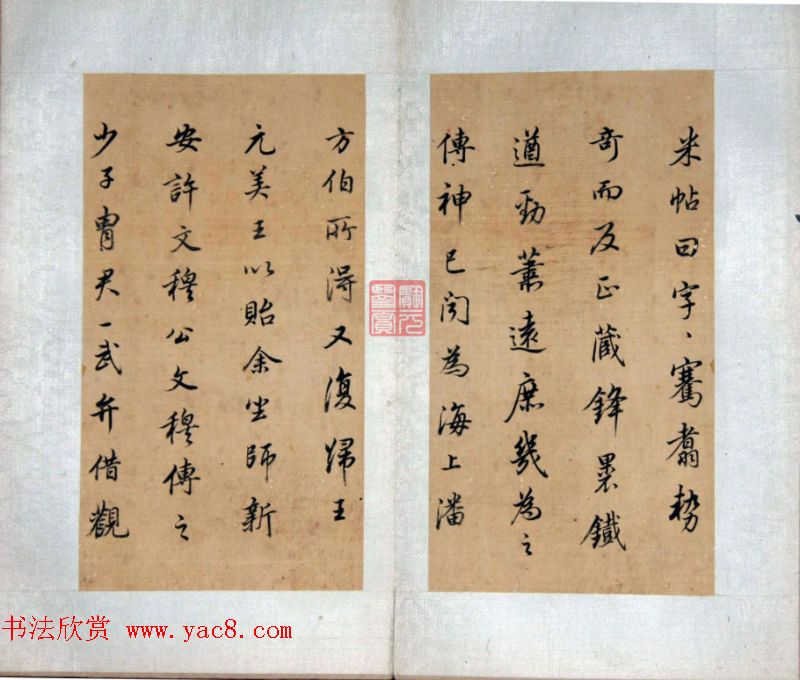 米帖曰字〻騫翥勢
奇而反正藏鋒裹鐵
遒勁蕭遠庶幾為之
傳神已聞為海上潘
方伯所得又復歸王
元美王以貽余坐師新
安許文穆公文穆傳之
少子胄君一武弁借觀
书法欣赏 www.yac8.com